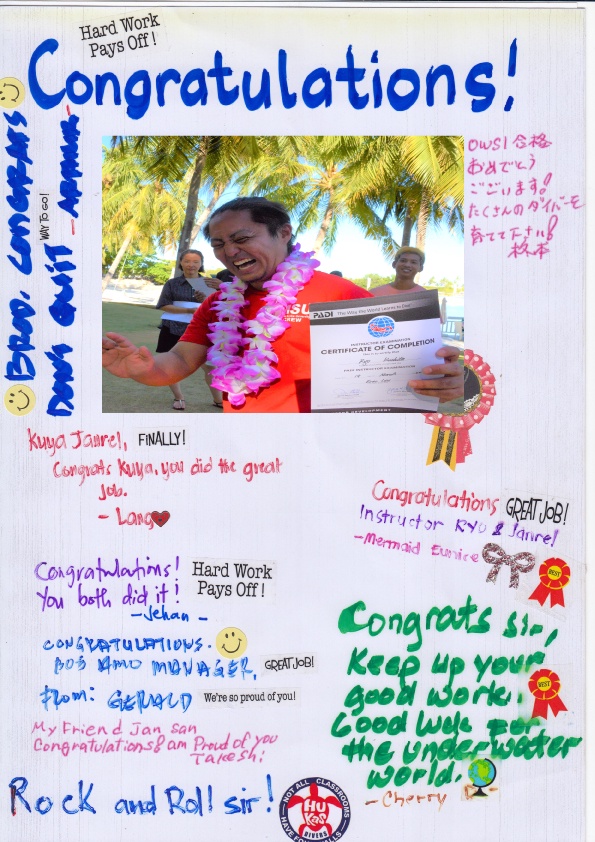 Hard Work
Pays Off!
Congratulations!
BROD, CONGRATS
WAY TO GO!
DON'T QUIT
OWSI 合格
おめでとう
ございます!
たくさんのダイバーを
育てて下さい!
PADI The Way the World Learns to Dive
INSTRUCTOR EXAMINATION
CERTIFICATE OF COMPLETION
Kuya Janrel, FINALLY!
Congrats Kuya, you did the great
job.
- Lang
Congratulations GREAT JOB!
Instructor RYO & Janrel
- Mermaid Eunice
BEST
Congratulations! Hard Work
You both did it! Pays Off!
- Jehan -
CONGRATULATIONS.
BOS AMO MANAGER, GREAT JOB!
FROM: GERALD We're so proud of you!
My Friend Jan san
Congratulations & am Proud of you
Takeshi
Congrats sir,
Keep up your
good work.
BEST
Good luck for
the underwater
world.
- Cherry
Rock and Roll sir!
NOT ALL CLASSROOMS
HU
DIVERS